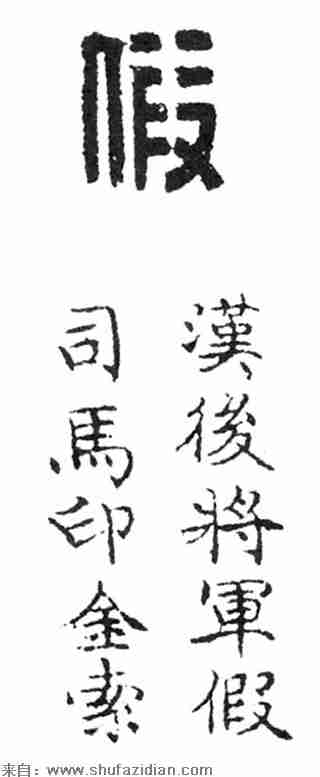 假
漢後將軍假
司馬印金索
来自：www.shufazidian.com